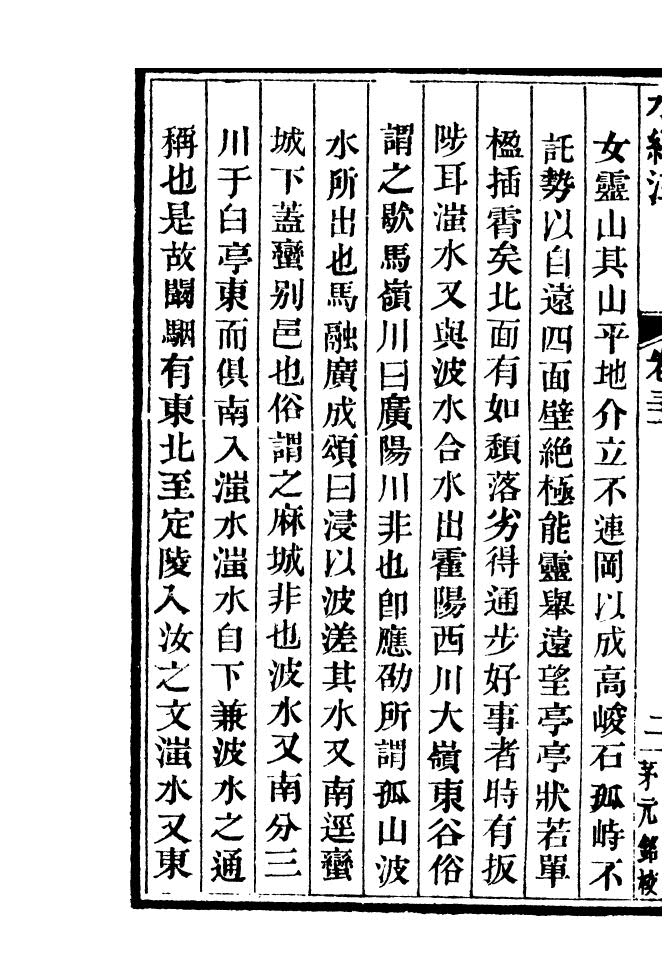 水經注 卷三十一 二 茅元銘校
女靈山其山平地介立不連岡以成高峻石孤峙不
託勢以自遠四面壁絶極能靈舉遠望亭亭狀若單
楹插霄矣北面有如頹落劣得通步好事者時有扳
陟耳滍水又與波水合水出霍陽西川大嶺東谷俗
謂之歇馬嶺川曰廣陽川非也卽應劭所謂孤山波
水所出也馬融廣成頌曰浸以波溠其水又南逕蠻
城下蓋蠻别邑也俗謂之麻城非也波水又南分三
川于白亭東而俱南入滍水滍水自下兼波水之通
稱也是故闞駰有東北至定陵入汝之文滍水又東